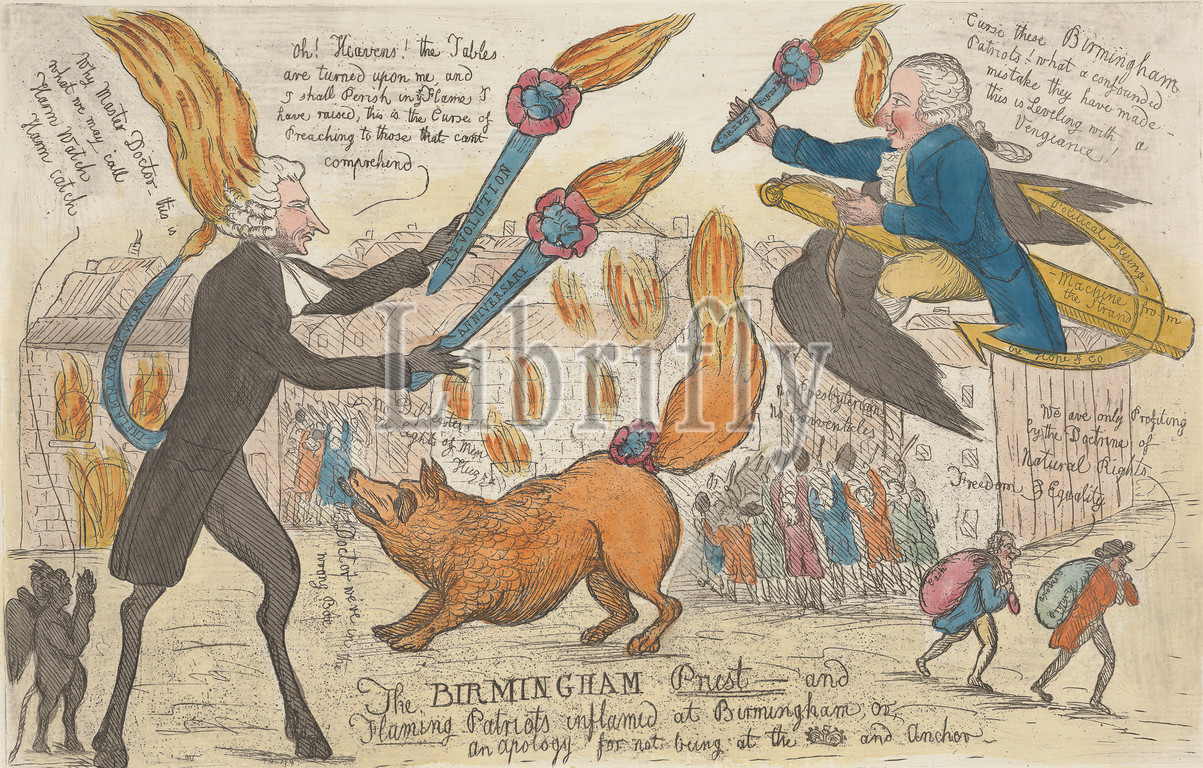 Why Master Doctor - this is
what we may call
Harm Watch
Harm catch
Oh! Heavens! the Tables
are turned upon me and
I shall Perish in ye Flame I
have raised, this is the Curse of
Preaching to those that cant
comprehend
Curse these Birmingham
Patriots! what a confounded
mistake they have made -
this is Leveling with a
Vengeance!
REVOLUTION
ANNIVERSARY
FORREST
WORKS
Political Flying
- Machine from
the Strand
Hope & Co
No
Rights of Men
Huzza
No Presbyterian
No Conventicles
We are only Profiting
by the Doctrine of
Natural Rights
Freedom & Equality
Doctor we're in the
wrong Box
Librifly
The BIRMINGHAM Priest - and
Flaming Patriots inflamed at Birmingham, or,
an apology for not being at the and Anchor -